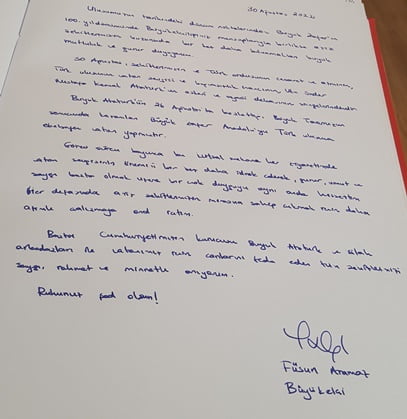 30 Ağustos 2022
Ulusumuzun tarihindeki dönüm noktalarından Büyük Zafer'in
100. yıldönümünde Büyükelçiliğimiz mensuplarıyla birlikte aziz
şehitlerimizin huzurunda bir kez daha bulunmaktan büyük
mutluluk ve gurur duyuyorum.
30 Ağustos, şehitlerimizin ve Türk ordusunun cesaret ve
Türk ulusunun vatan sevgisi ve bağımsızlık Ulu Önder
Mustafa Kemal Atatürk'ün askeri ve siyasi dehasının
Büyük Atatürk'ün 26 Ağustos'ta başlattığı Büyük Taarruzun
sonucunda kazanılan Büyük Zafer Anadolu'yu Türk ulusuna
ebediyen vatan yapmıştır.
Görev sürem boyunca bu kutsal mekana her ziyaretimde
vatan sevgisinin önemini bir kez daha idrak ederek, gurur, ve
saygı başta olmak üzere bir çok duyguyu aynı anda hissettim
Her defasında aziz şehitlerimizin mirasına sahip çıkmak için daha
çalışmaya and içtim.
Başta Cumhuriyetimizin kurucusu Büyük Atatürk ve silah
arkadaşları ile vatanımız için canlarını feda eden tüm şehitlerimizi
saygı, rahmet ve minnetle anıyorum.
Ruhunuz şad olsun!
Füsun Aramaz
Büyükelçi